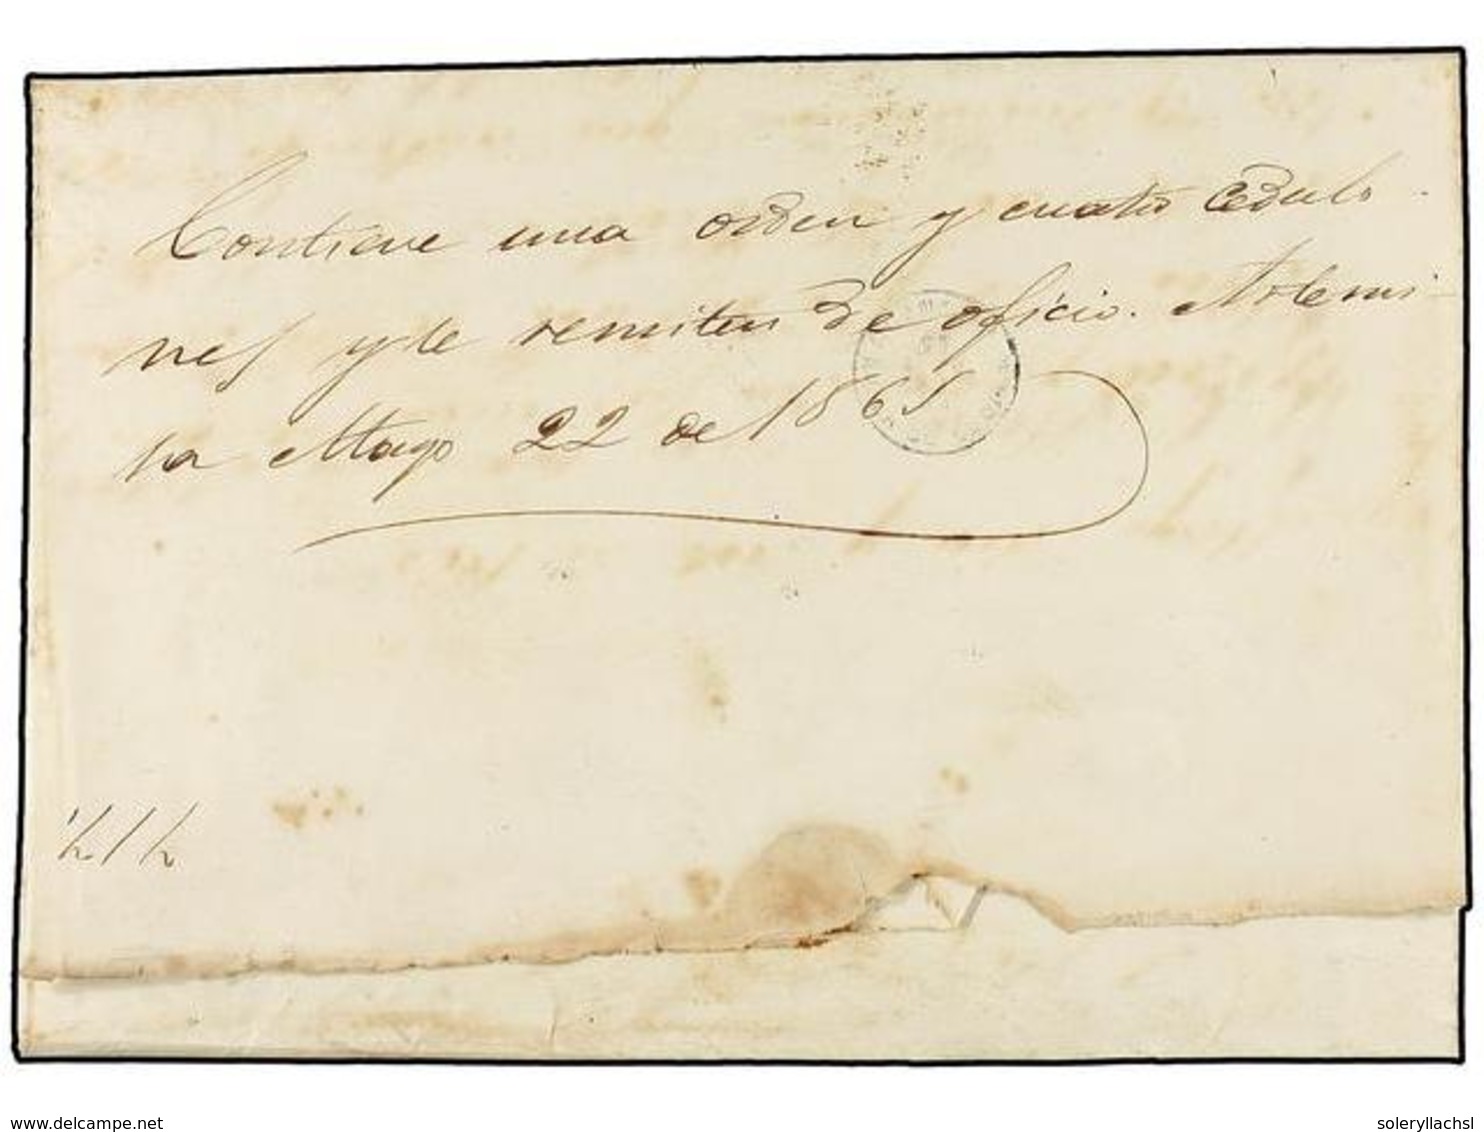 Contiene una orden y cuatro cedulo
nes y se remiten de oficio. Artemi-
sa Mayo 22 de 1865
delcampe.net
soleryllachsl